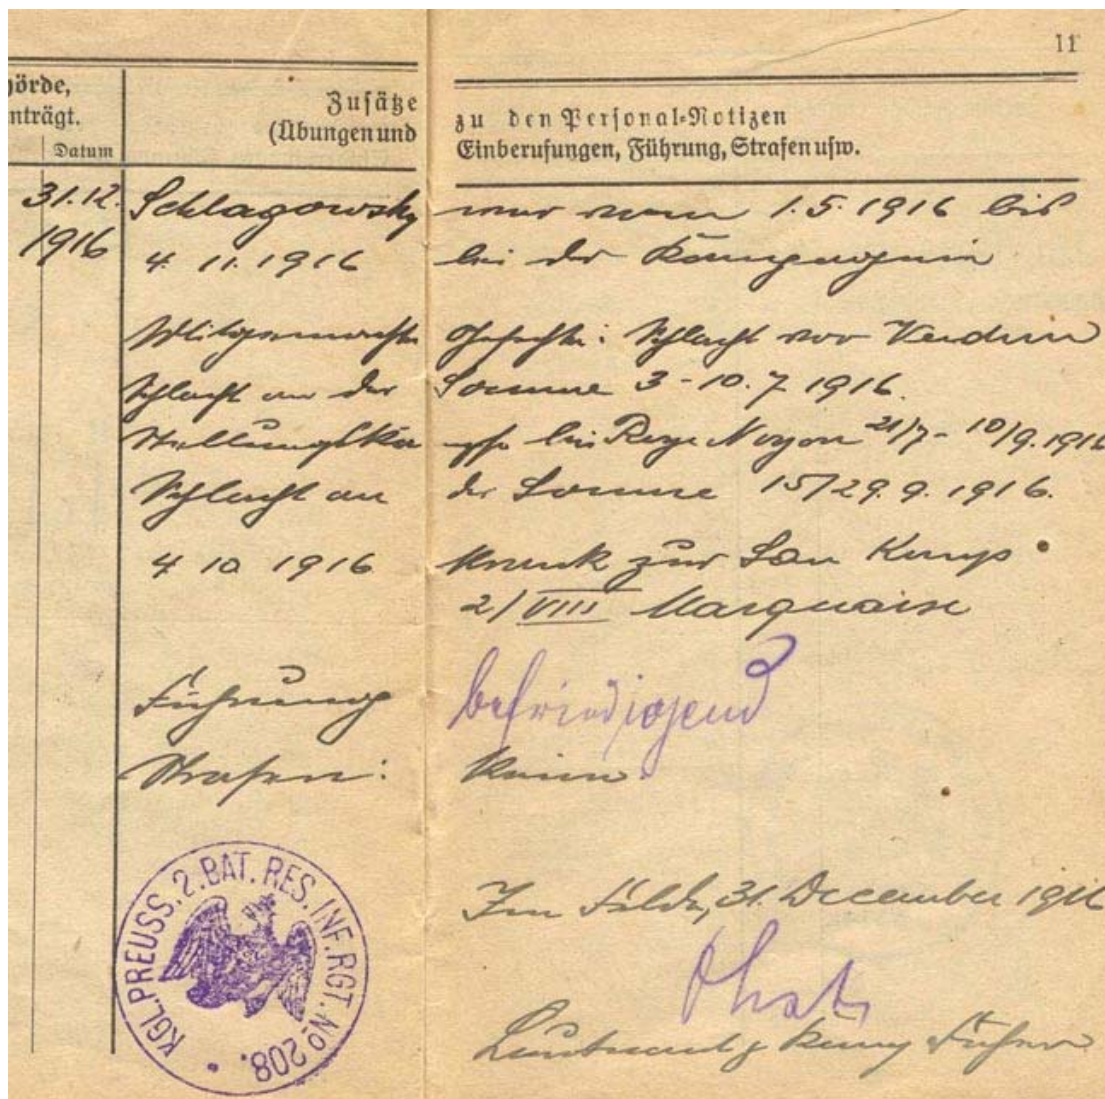 11
hörde,
nträgt.
Datum
Zusätze zu den Personal-Notizen
(Übungen und Einberufungen, Führung, Strafen usw.
31.12. Schlagowsky war vom 1.5.1916 bis
1916 4.11.1916 bei der Kompagnie
Mitgemachte Gefechte: Schlacht vor Verdun
Schlacht an der Somme 3-10.7.1916.
Stellungskämpfe bei Roye Noyon 21/7 - 10/9.1916
Schlacht an der Somme 15/29.9.1916.
4 10 1916 krank zur San Komp
2/VIII
Führung befriedigend
Strafen: Keine.
Im Felde, 31. December 1916
Leutnant & Komp Führer
KGL. PREUSS. 2. BAT. RES. INF. RGT. No 208.